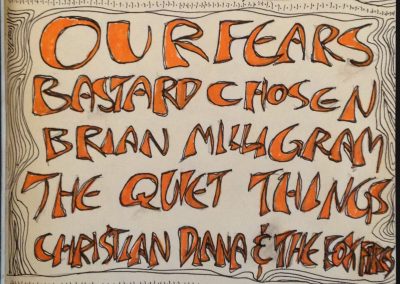 OUR FEARS
BASTARD CHOSEN
BRIAN MILLIGRAM
THE QUIET THINGS
CHRISTIAN DIANA & THE FOX FIRES